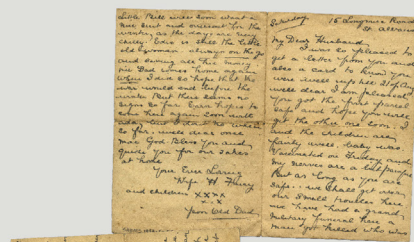 Little Bill will soon want a
new suit and overcoat for the
winter, as the days are very
chilly. Edie is still the little
old woman, always on the go
and saving all her money
till Dad comes home again
when I do so hope that the
war would end before the
winter But there seems no
signs so far. Earn hopes to
come here again soon will
so far. well dear once
more God Bless You and
guide You for our sakes
at home
Your Ever Loving
Wife H. 
and children xxxx
x.x
from old Dad
Saturday
16 Longmire Road
St
My Dear Husband,
I was so pleased to
get a letter from you and
also a card to know you
were well up till 21st
well dear I am pleased
you got the first parcel
safe and hope you will
get the other one soon. I
and the children are
fairly well. baby was
Vaccinated on Friday and
my nerves are a bit
But as long as you are
safe.. we shall get over
our small troubles here
we have had a grand
Military funeral here a
man got killed who was